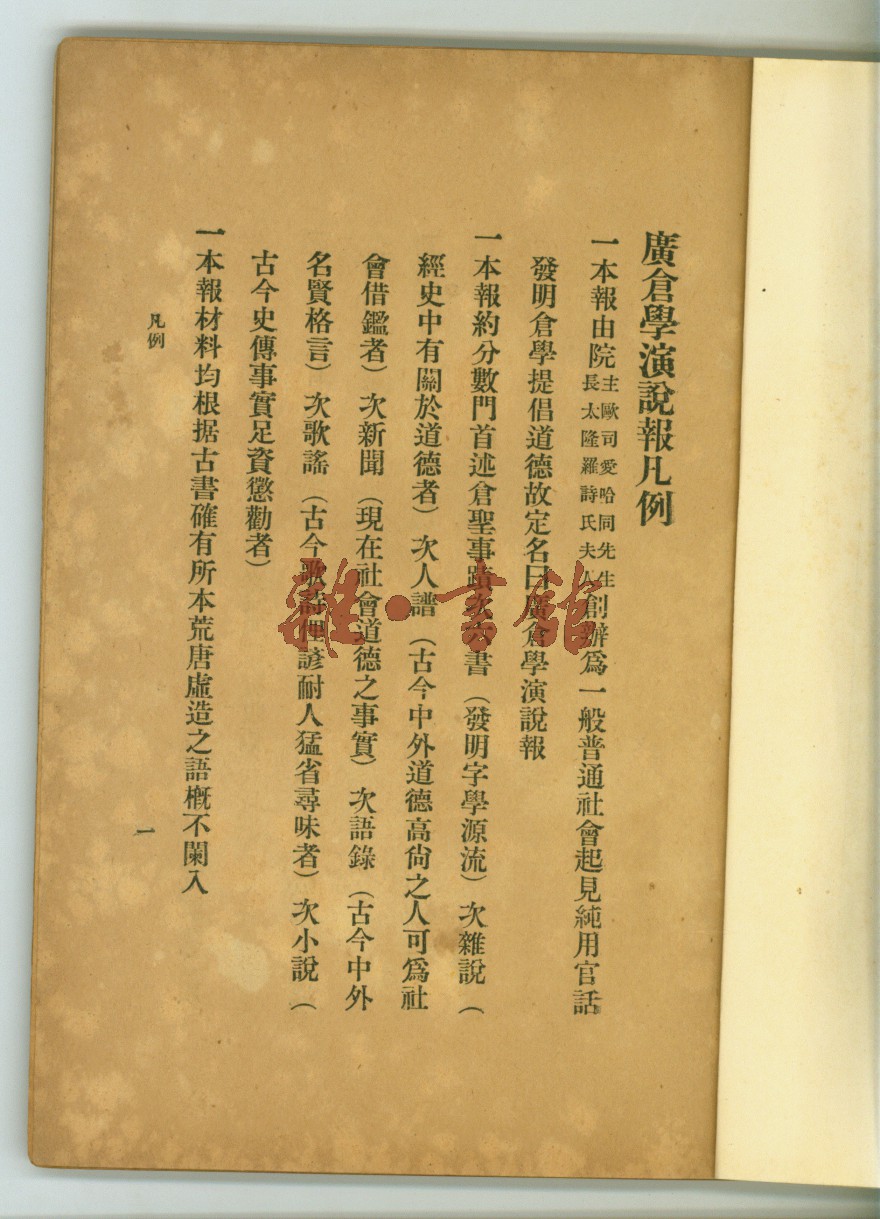 廣倉學演說報凡例
一本報由院主歐司愛哈同先生長太隆羅詩氏夫人創辦爲一般普通社會起見純用官話
發明倉學提倡道德故定名曰廣倉學演說報
一本報約分數門首述倉聖事蹟次六書（發明字學源流）次雜說（
經史中有關於道德者）次人譜（古今中外道德高尙之人可爲社
會借鑑者）次新聞（現在社會道德之事實）次語錄（古今中外
名賢格言）次歌謠（古今歌詩俚諺耐人猛省尋味者）次小說（
古今史傳事實足資懲勸者）
一本報材料均根据古書確有所本荒唐虛造之語槪不闌入
凡例
一
雅·書館